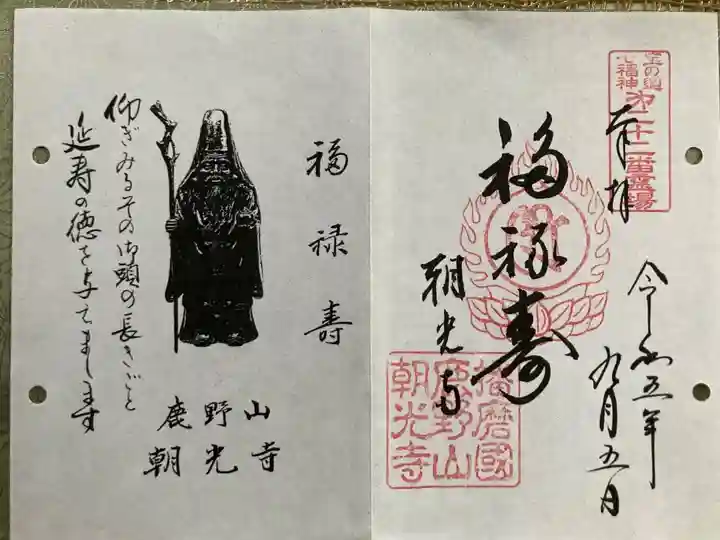 奉拝
令和五年
九月五日
福禄寿
朝光寺
第二十二番霊場
七福神
播磨國
鹿野山
朝光寺
福禄寿
仰ぎみるその御頭の長きごと
延寿の徳を与てまします
鹿野山
朝光寺